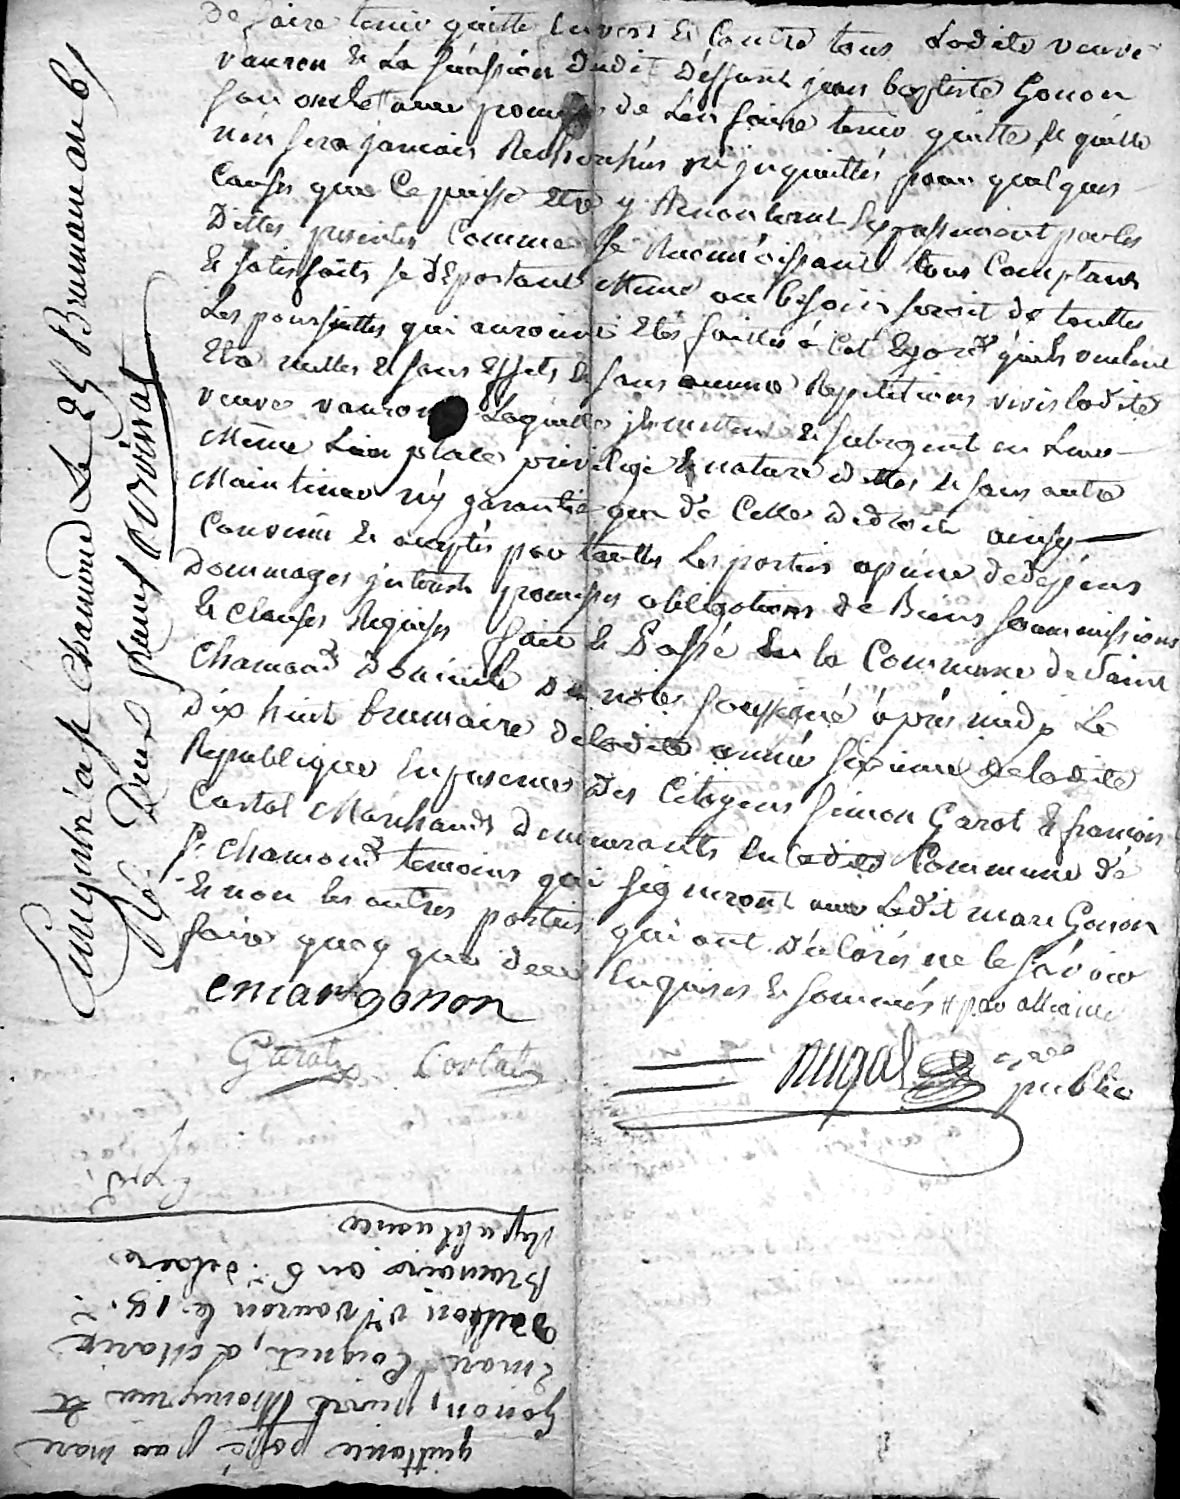 De faire tenir quitte envers & Contre tous Ladite veuve
vauron & La succession dudit déffunt jean baptiste Gonon
son oncle avec promesse de Len faire tenir quitte & quelle
n'en sera jamais Recherchée ni inquiettée pour quelques
Causes que Ce puisse etre y Renoncant Expressement par les
Dittes presentes Comme se Reconnoissant tous Comptans
& satisfaits se départant Même au besoin seroit de touttes
Les poursuittes qui auroient Etés faittes à Cet Egard quils veulent
Etre nulles & sans Effets & sans aucune Repetitions vis vis ladite
veuve vauron Laquelle ils mettent & subrogent en Leur
Même Lieu place privilege & nature dettes & sans autre
Maintenue n'y garantie que de Celle de droit ainsy
Convenu & accepté par touttes Les parties apeine de depens
dommages interets promesses obligations de Biens soummissions
& Clauses Requises fait & Passé En la Commune de Saint
Chamond Domicile du no.re soussigné après midy Le
Dix huit brumaire de ladite année sixieme de ladite
Republique En presence Des Citoyens simon Garot & francois
Cartal Marchands demeurants en ladite Commune de
St. Chamond temoins qui signeront avec Ledit marc Gonon
& non les autres parties qui ont déclarés ne le sçavoir
faire quoy que de ce Enquises & sommés # par alliance
emar gonon
Garot Cartal
nugal no.re
public
Enregistré a St Chamond Le 25 Brumaire an 6
R. Deux francs
quittance passé par marc
Gonon, pierre &
emare Coignet, a Marie
v.e vauron le 18.
Brumaire an 6.e de la
Republicaine